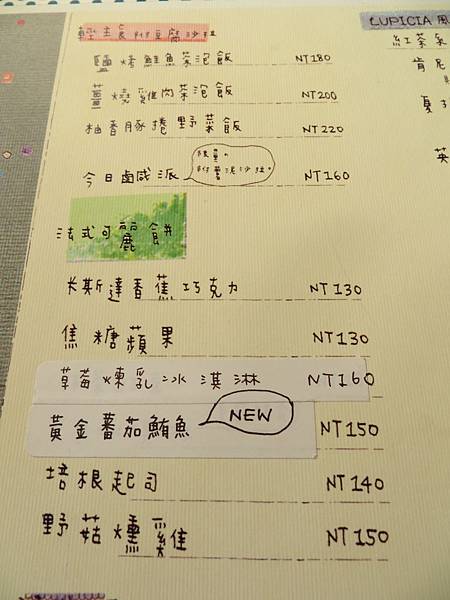 輕主食附豆腐沙拉
鹽烤鮭魚茶泡飯 NT180
薑燒雞肉茶泡飯 NT200
柚香豚捲野菜飯 NT220
今日鹹派 NT160
限量。
附薯泥沙拉。
法式可麗餅
米斯達香蕉巧克力 NT130
焦糖蘋果 NT130
草莓煉乳冰淇淋 NT160
黃金蕃茄鮪魚 NEW NT150
培根起司 NT140
野菇燻雞 NT150
LUPICIA 風
紅茶系
肯尼
夏
英